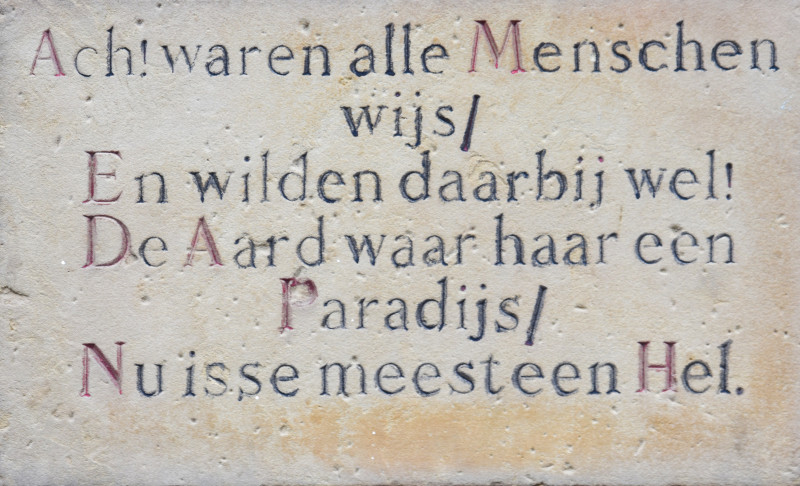 Ach! waren alle Menschen
wijs/
En wilden daarbij wel!
De Aard waar haar een
Paradijs/
Nu isse meest een Hel.